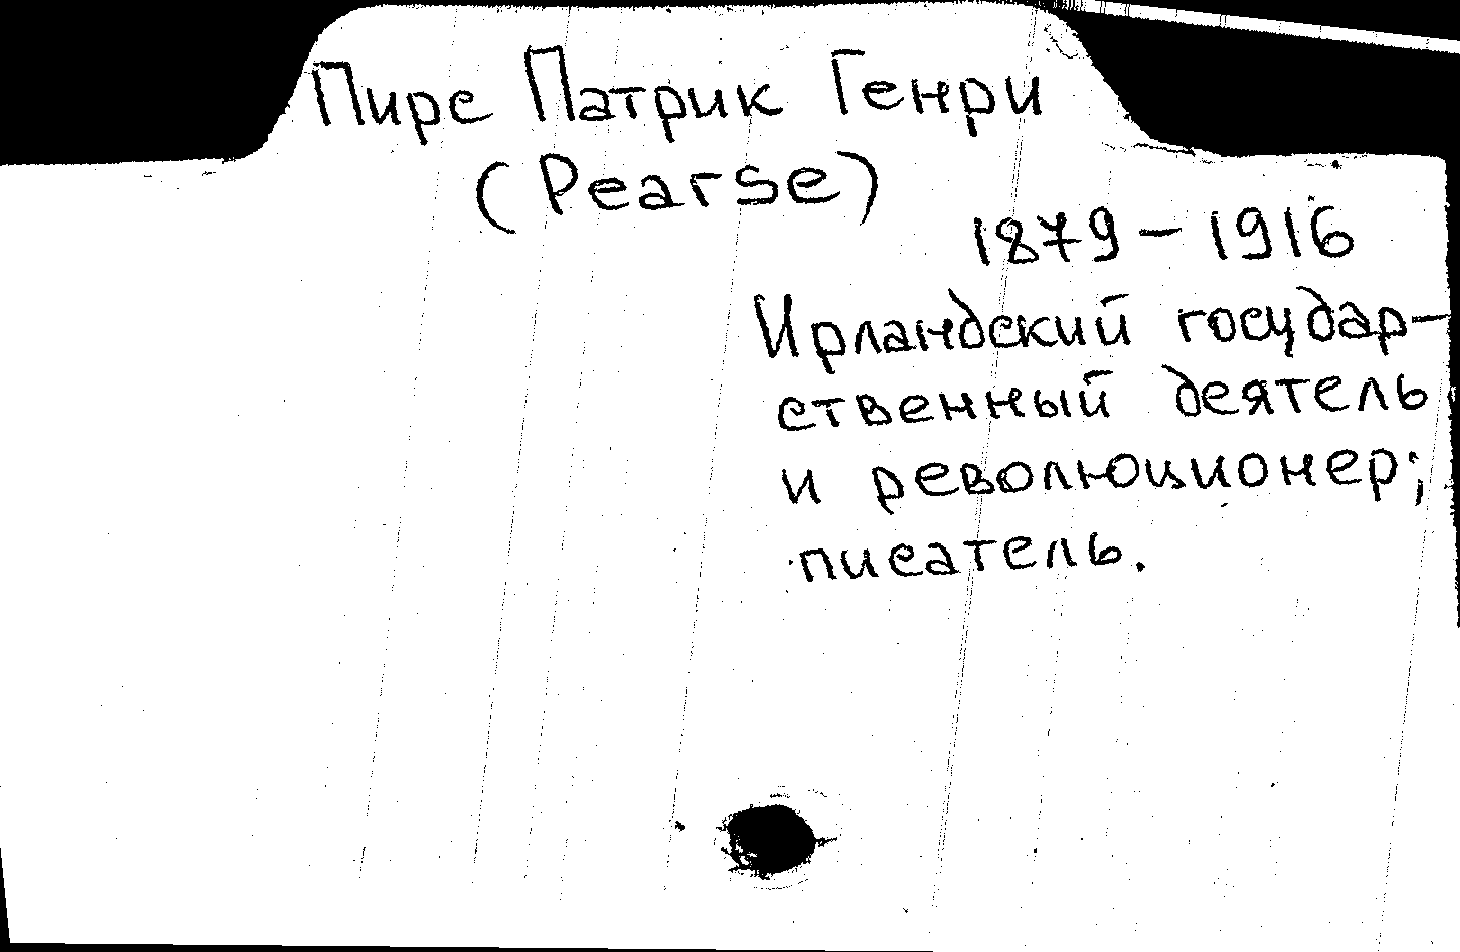 Пирс Патрик Генри
(Pearse)
1879 – 1916
Ирландский государ-
ственный деятель
и революционер;
писатель.